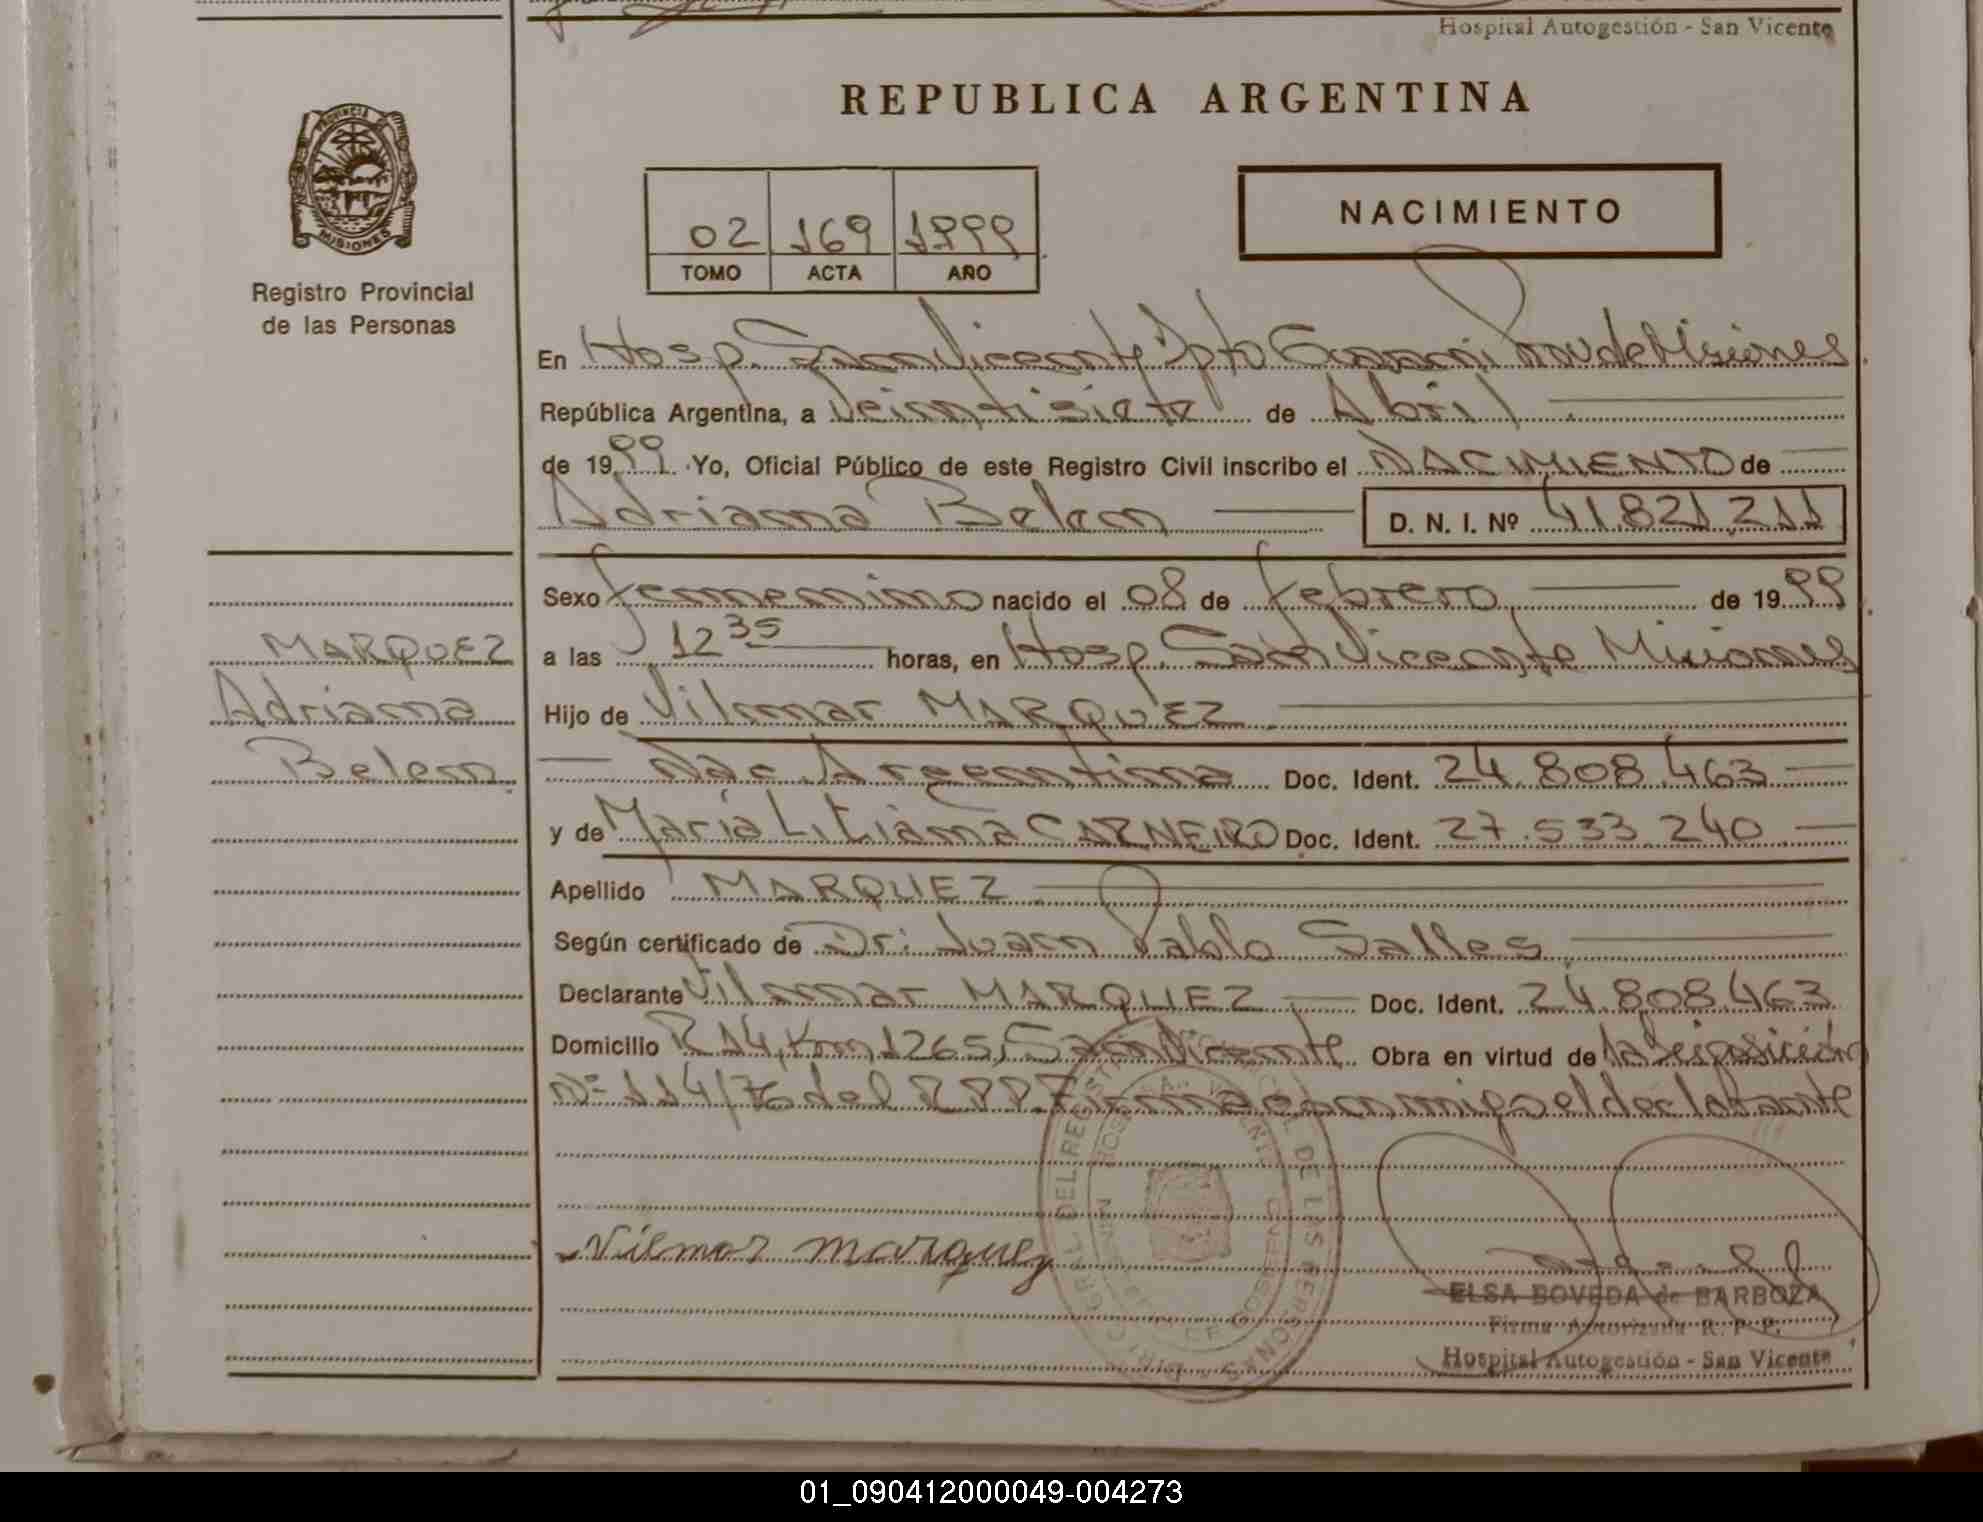 Hospital Autogestión - San Vicente
REPUBLICA ARGENTINA
PROVINCIA DE
MISIONES
Registro Provincial
de las Personas
02 169 1999
TOMO ACTA AÑO
NACIMIENTO
En Hosp. San Vicente Dpto Guaraní Prov de Misiones
República Argentina, a Veintisiete de Abril
de 1999 Yo, Oficial Público de este Registro Civil inscribo el NACIMIENTO de
Adriana Belem D. N. I. Nº 41.821.211
MARQUEZ
Adriana
Belem
Sexo femenino nacido el 08 de febrero de 1999
a las 12 35 horas, en Hosp. San Vicente Misiones
Hijo de Vilmar MARQUEZ
Nac. Argentina Doc. Ident. 24.808.463
y de María Liliana CARNEIRO Doc. Ident. 27.533.240
Apellido MARQUEZ
Según certificado de Dr. Juan Pablo Salles
Declarante Vilmar MARQUEZ Doc. Ident. 24.808.463
Domicilio R 14, Km 1265, San Vicente Obra en virtud de la Disposición
Nº 114/76 del R.P.P. Firma conmigo el declarante
Vilmar marquez
ELSA BOVEDA de BARBOZA
Firma Autorizada R. P. P.
Hospital Autogestión - San Vicente
01_090412000049-004273